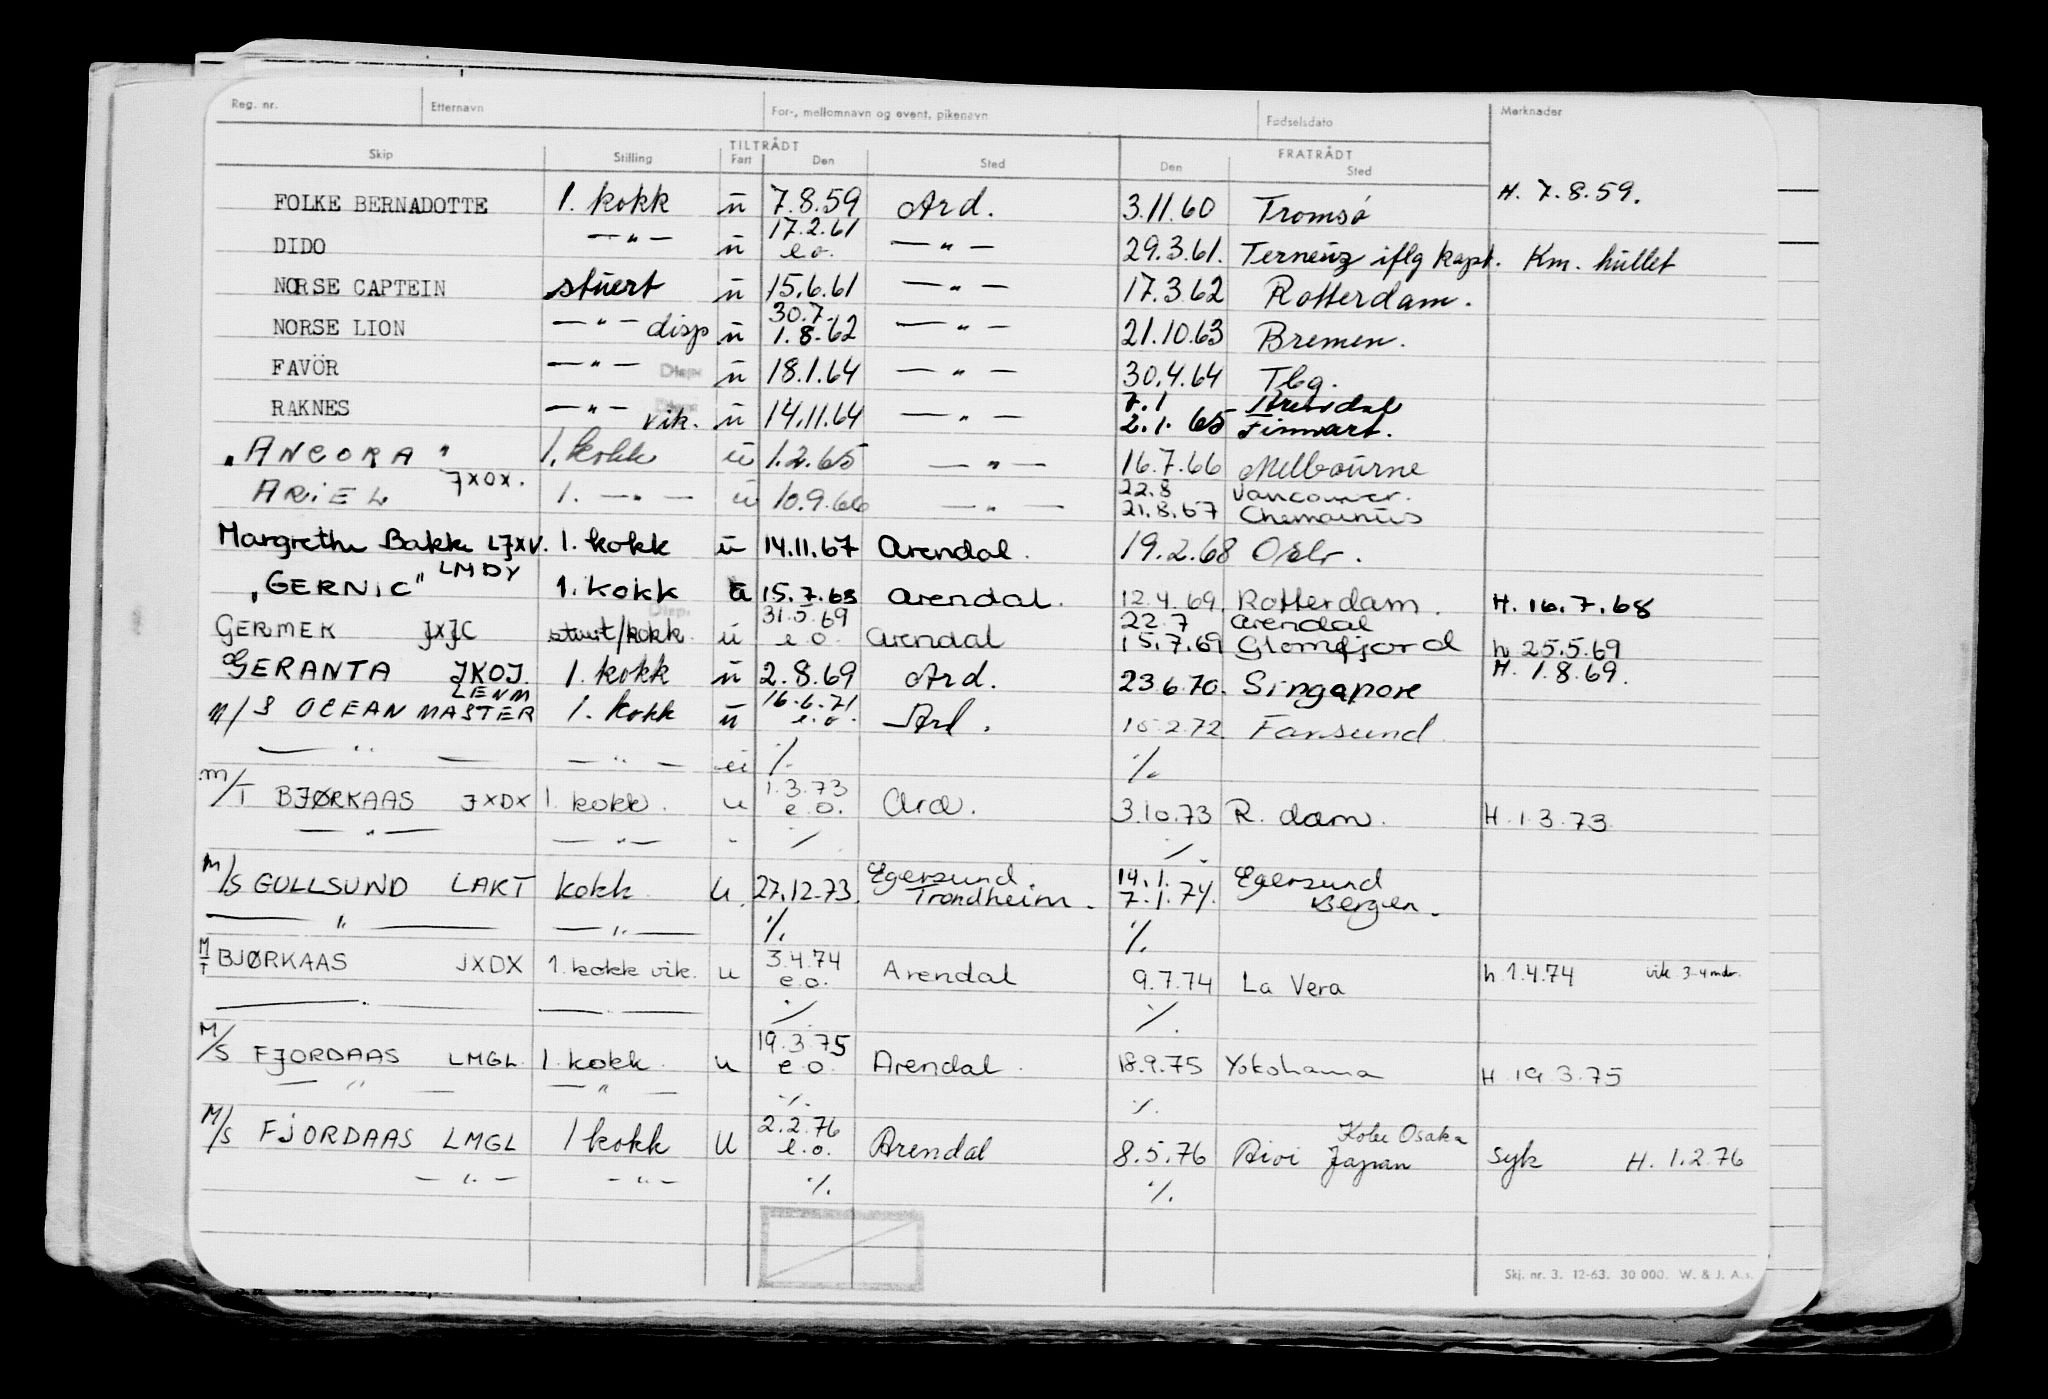 Reg. nr. Etternavn For-, mellomnavn og event, pikenavn Fødselsdato Merknader
TILTRÅDT FRATRÅDT
Skip Stilling Fart Den Sted Den Sted
FOLKE BERNADOTTE 1. kokk u 7.8.59 Ard. 3.11.60 Tromsø H. 7.8.59.
17.2.61
DIDO — " — u e.o. — " — 29.3.61. Terneuz iflg kapt. Km. hullet
NORSE CAPTEIN stuert u 15.6.61 — " — 17.3.62 Rotterdam.
30.7.
NORSE LION — " — disp u 1.8.62 — " — 21.10.63 Bremen.
FAVÖR — " — Disp. u 18.1.64 — " — 30.4.64 Tbg.
7.1 Arendal
RAKNES — " — vik. u 14.11.64 — " — 2.1. 65 Finnart.
"ANCORA" 1. kokk u 1.2.65 — " — 16.7.66 Melbourne
JXOX. 22.8 Vancouver.
ARIEL 1. — " — u 10.9.66 — " — 21.8.67 Chemainus
Margrethe Bakke LJXV. 1. kokk u 14.11.67 Arendal. 19.2.68 Oslo.
LMDY
"GERNIC" 1. kokk u 15.7.68 Arendal. 12.4.69. Rotterdam. H. 16.7.68
Disp. 31.5.69 22.7 Arendal
GERMEK JXJC stuert/kokk. u e.o. Arendal 15.7.69 Glomfjord h 25.5.69
GERANTA JKOJ. 1. kokk u 2.8.69 Ard. 23.6.70. Singapore H. 1.8.69.
LENM 16.6.71
M/S OCEAN MASTER 1. kokk u e.o. Ard. 15.2.72 Farsund.
— " — — " — u %. %.
1.3.73
M/T BJØRKAAS JXDX 1. kokk. u e.o. Ard. 3.10.73 R. dam. H. 1.3.73
— " — — " — - % %.
Egersund. 14.1. Egersund
M/S GULLSUND LAKT kokk u. 27.12.73. Trondheim. 7.1.74. Bergen.
— " — — " — %. %.
3.4.74
M/T BJØRKAAS JXDX 1. kokk vik. u e.o. Arendal 9.7.74 La Vera h 1.4.74 vik 3-4 mdr.
— " — — " — % %.
19.3.75
M/S FJORDAAS LMGL. 1. kokk. u e.o. Arendal. 18.9.75 Yokohama H 19.3.75
— " — — " — %. %.
2.2.76 Kobe Osaka
M/S FJORDAAS LMGL 1 kokk U e.o. Arendal 8.5.76 Aioi Japan Syk H. 1.2.76
— " — — " — %. %.
Skj. nr. 3. 12-63. 30 000. W. & J. A.s.